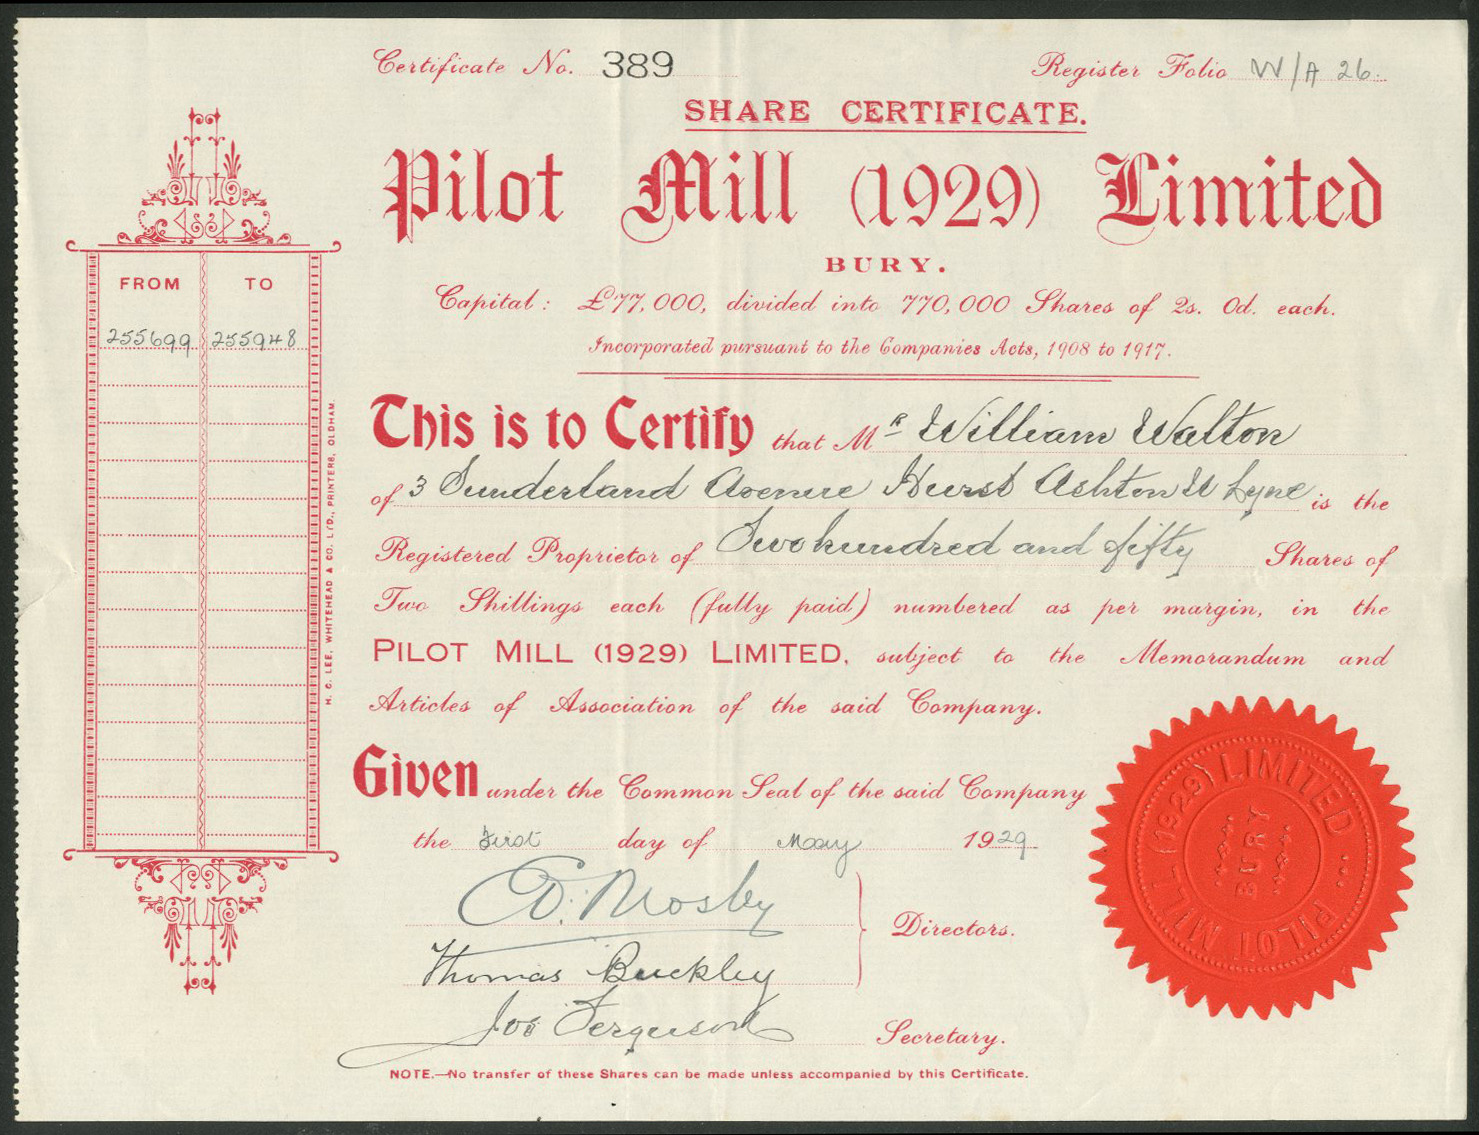 Certificate No. 389
Register Folio W/A 26.
SHARE CERTIFICATE.
Pilot Mill (1929) Limited
BURY.
Capital: £77,000, divided into 770,000 Shares of 2s. 0d. each.
Incorporated pursuant to the Companies Acts, 1908 to 1917.
FROM TO
255699 255948
This is to Certify that Mr William Walton
of 3 Sunderland Avenue Hurst Ashton U Lyne is the
Registered Proprietor of Two hundred and fifty Shares of
Two Shillings each (fully paid) numbered as per margin, in the
PILOT MILL (1929) LIMITED, subject to the Memorandum and
Articles of Association of the said Company.
Given under the Common Seal of the said Company
the First day of May 1929
D. Mosby
Thomas Buckley
Directors.
Jos Ferguson
Secretary.
NOTE.—No transfer of these Shares can be made unless accompanied by this Certificate.
H. C. LEE, WHITEHEAD & CO. LTD., PRINTERS, OLDHAM.
PILOT MILL (1929) LIMITED
BURY